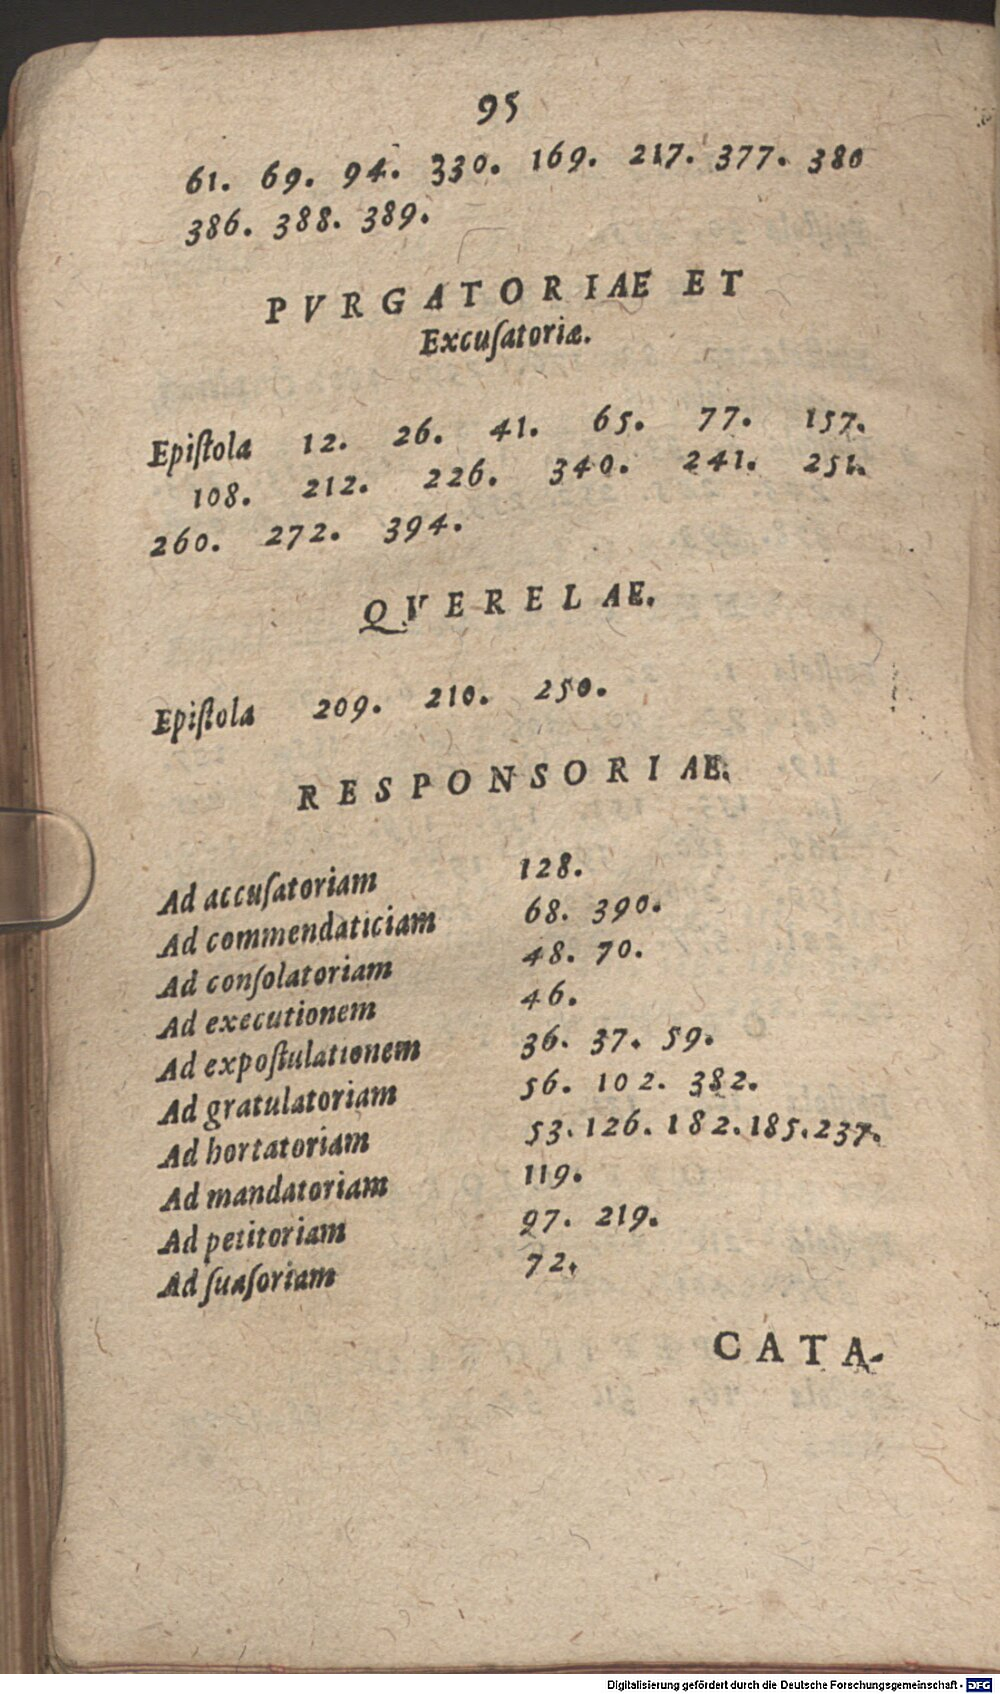 95
61. 69. 94. 330. 169. 217. 377. 380
386. 388. 389.
PVRGATORIAE ET
Excuſatoriæ.
Epiſtola 12. 26. 41. 65. 77. 157.
108. 212. 226. 340. 241. 251.
260. 272. 394.
QVERELAE.
Epiſtola 209. 210. 250.
RESPONSORIAE.
Ad accuſatoriam 128.
Ad commendaticiam 68. 390.
Ad conſolatoriam 48. 70.
Ad executionem 46.
Ad expoſtulationem 36. 37. 59.
Ad gratulatoriam 56. 102. 382.
Ad hortatoriam 53. 126. 182. 185. 237.
Ad mandatoriam 119.
Ad petitoriam 97. 219.
Ad ſuaſoriam 72.
CATA-
Digitalisierung gefördert durch die Deutsche Forschungsgemeinschaft - DFG